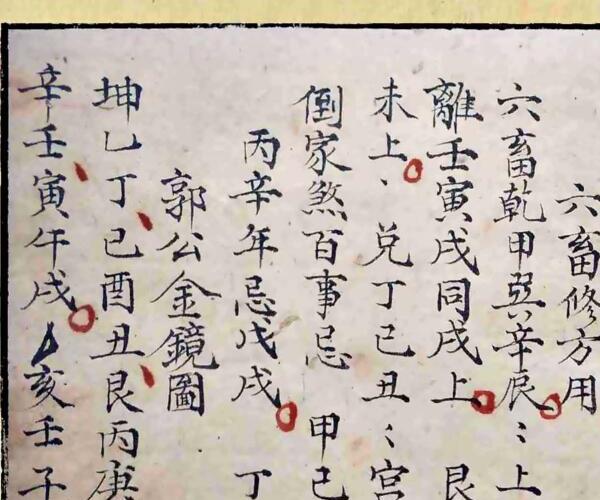 六畜修方用
六畜乾甲巽辛辰〻上
離壬寅戌同戌上 艮
未上、兑丁巳丑〻宫
倒家煞百事忌 甲己
丙辛年忌戊戌 丁
郭公金鏡圖
坤乙丁巳酉丑艮丙庚
辛壬寅午戌 亥壬子